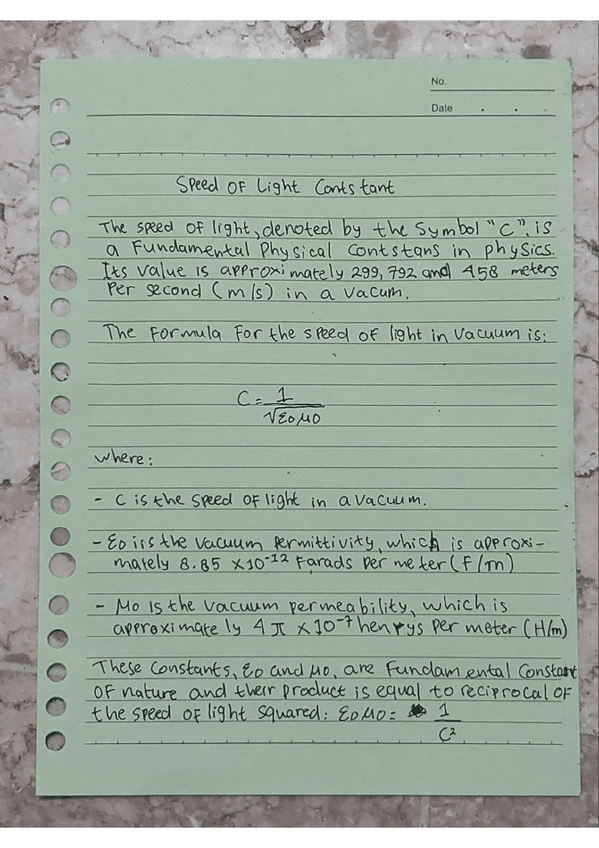 No.
Date . . .
Speed OF Light Contstant
The speed of light, denoted by the Symbol "C", is
a Fundamental Physical Contstans in physics.
Its value is approximately 299,792 and 458 meters
Per second (m/s) in a vacum.
The Formula For the speed of light in vacuum is:
C = 1
√ε0μ0
where:
- C is the speed of light in a vacuum.
- ε0 iis the vacuum Permittivity, which is approxi-
mately 8.85 x 10⁻¹² Farads Per meter (f/m)
- μ0 is the vacuum permeability, which is
approximately 4π x 10⁻⁷ henrys Per meter (H/m)
These Constants, ε0 and μ0, are Fundamental Constant
OF nature and their product is equal to reciprocal OF
the speed of light squared: ε0μ0 = 1
C²